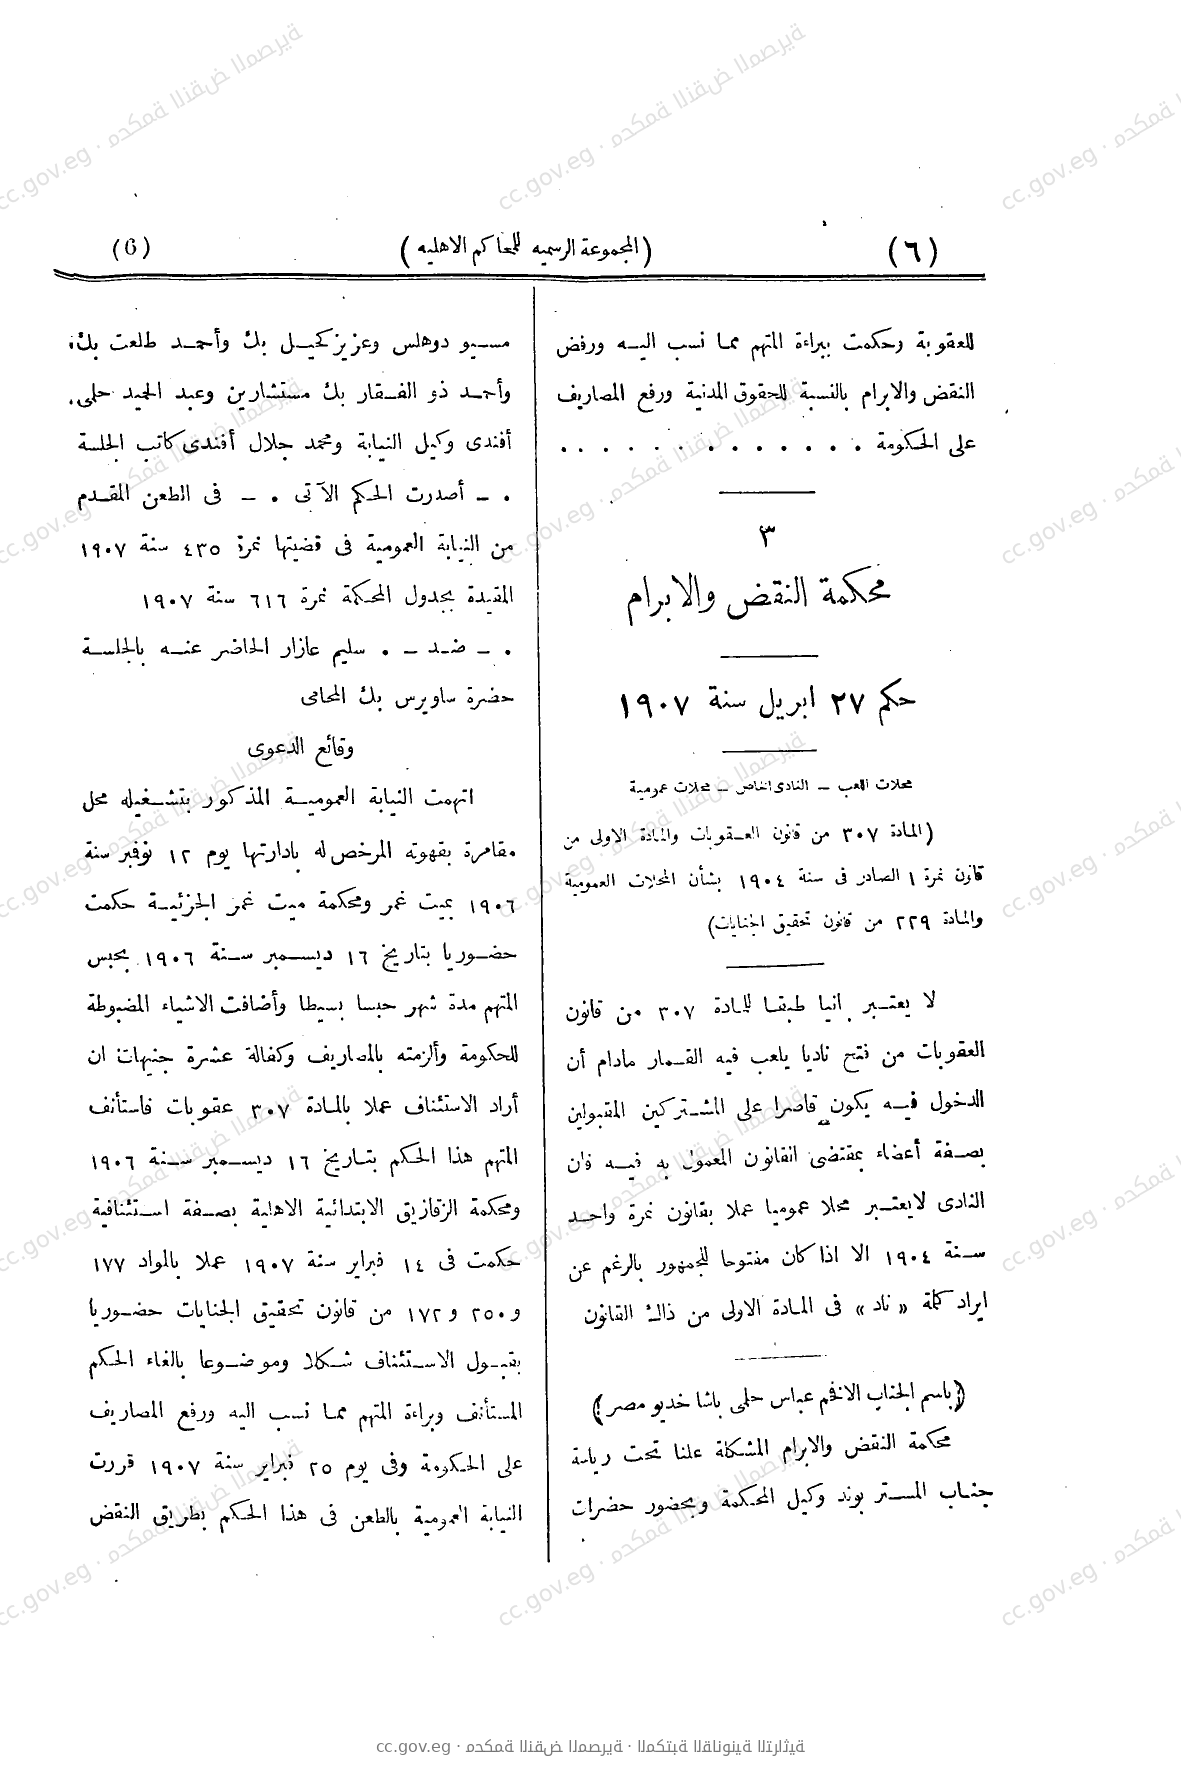 (٦)
(المجموعة الرسميه للمحاكم الاهليه)
(6)
للعقوبة وحكمت ببراءة المتهم مما نسب اليه ورفض
النقض والابرام بالنسبة للحقوق المدنية ورفع المصاريف
على الحكومة . . . . . . . . . . . . .
٣
محكمة النقض والابرام
حكم ٢٧ ابريل سنة ١٩٠٧
محلات اللعب — النادى الخاص — محلات عمومية
(المادة ٣٠٧ من قانون العقوبات والمادة الاولى من
قانون نمرة ١ الصادر فى سنة ١٩٠٤ بشأن المحلات العمومية
والمادة ٢٢٩ من قانون تحقيق الجنايات)
لا يعتبر انيا طبقا للمادة ٣٠٧ من قانون
العقوبات من فتح ناديا يلعب فيه القمار مادام أن
الدخول فيه يكون قاصرا على المشتركين المقبولين
بصفة أعضاء بمقتضى القانون المعمول به فيه فان
النادى لايعتبر محلا عموميا عملا بقانون نمرة واحد
سنة ١٩٠٤ الا اذا كان مفتوحا للجمهور بالرغم عن
ايراد كلمة « ناد » فى المادة الاولى من ذاك القانون
(باسم الجناب الافخم عباس حلمى باشا خديو مصر)
محكمة النقض والابرام المشكلة علنا تحت رياسة
جناب المستر بوند وكيل المحكمة وبحضور حضرات
مسيو دوهلس وعزيز كحيل بك وأحمد طلعت بك
وأحمد ذو الفقار بك مستشارين وعبد المجيد حلمى
أفندى وكيل النيابة ومحمد جلال أفندى كاتب الجلسة
. — أصدرت الحكم الآتى . — فى الطعن المقدم
من النيابة العمومية فى قضيتها نمرة ٤٣٥ سنة ١٩٠٧
المقيدة بجدول المحكمة نمرة ٦١٦ سنة ١٩٠٧
. — ضد — . سليم عازار الحاضر عنه بالجلسة
حضرة ساويرس بك المحامى
وقائع الدعوى
اتهمت النيابة العمومية المذكور بتشغيله محل
مقامرة بقهوته المرخص له بادارتها يوم ١٢ نوفمبر سنة
١٩٠٦ بميت غمر ومحكمة ميت غمر الجزئية حكمت
حضوريا بتاريخ ١٦ ديسمبر سنة ١٩٠٦ بحبس
المتهم مدة شهر حبسا بسيطا وأضافت الاشياء المضبوطة
للحكومة وألزمته بالمصاريف وكفالة عشرة جنيهات ان
أراد الاستئناف عملا بالمادة ٣٠٧ عقوبات فاستأنف
المتهم هذا الحكم بتاريخ ١٦ ديسمبر سنة ١٩٠٦
ومحكمة الزقازيق الابتدائية الاهلية بصفة استئنافية
حكمت فى ١٤ فبراير سنة ١٩٠٧ عملا بالمواد ١٧٧
و٢٥٠ و١٧٢ من قانون تحقيق الجنايات حضوريا
بقبول الاستئناف شكلا وموضوعا بالغاء الحكم
المستأنف وبراءة المتهم مما نسب اليه ورفع المصاريف
على الحكومة وفى يوم ٢٥ فبراير سنة ١٩٠٧ قررت
النيابة العمومية بالطعن فى هذا الحكم بطريق النقض
cc.gov.eg · محكمة النقض المصرية · المكتبة القانونية التراثية